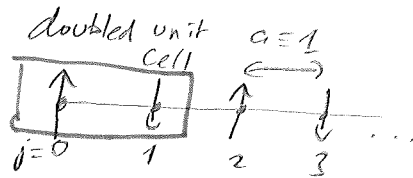 doubled unit
cell
a=1
j=0 1 2 3 ...